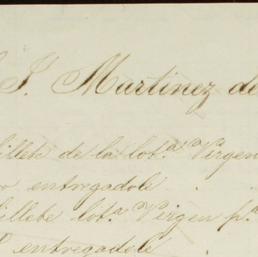 J. Martinez de
illete de la lot.a Virgen
entregadole
illete lot.a Virgen p.a
entregadole